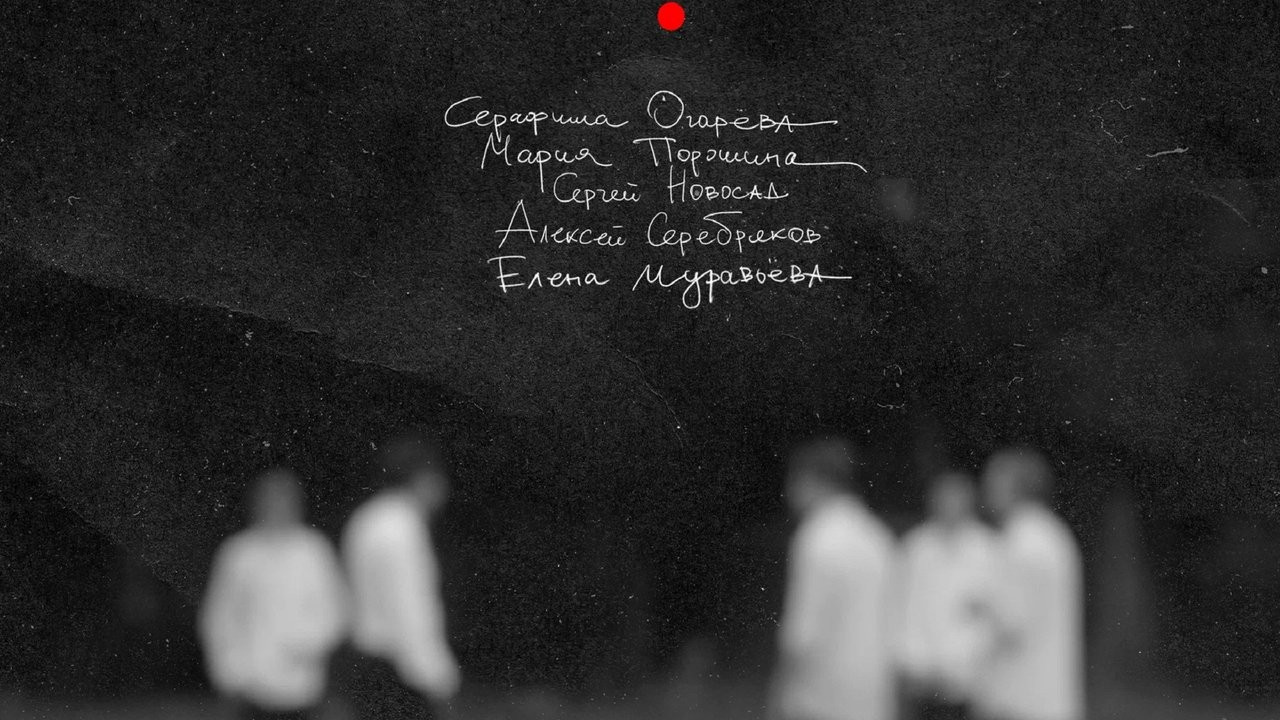 Серафима Огарёва
Мария Порошина
Сергей Новосад
Алексей Серебряков
Елена Муравьёва